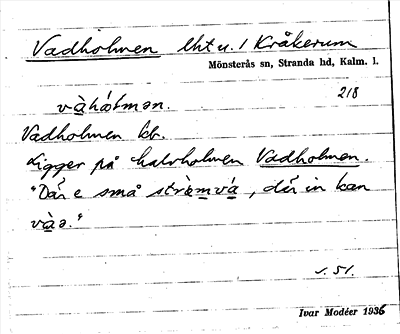 Vadholmen lht u. 1 Kråkerum
Mönsterås sn, Stranda hd, Kalm. l.
218
vàhólmən.
Vadholmen kb.
Ligger på halvholmen Vadholmen.
"Där e små strömvá, där in kan
vàə."
s. 51.
Ivar Modéer 1936